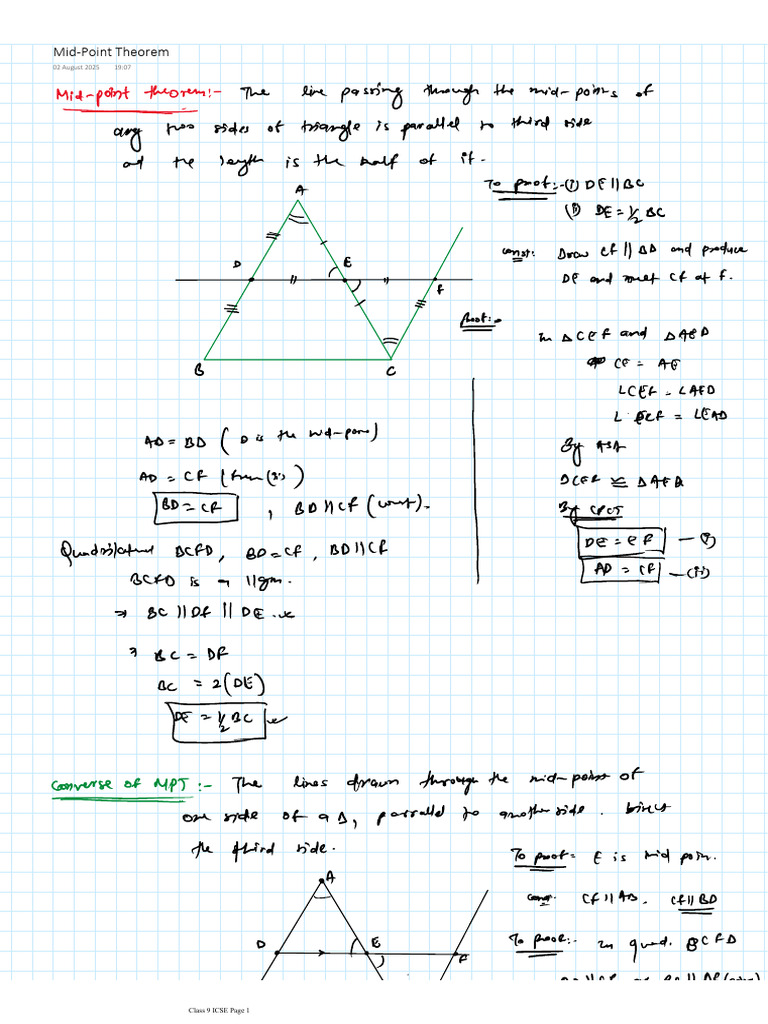 Mid-Point Theorem
02 August 2025 19:07
Mid-point theorem:- The line passing through the mid-points of
any two sides of triangle is parallel to third side
and the length is the half of it.
To proof:- (i) DE || BC
(ii) DE = 1/2 BC
const: Draw CF || BD and produce
DE and meet CF at F.
A
D
E
F
B
C
Proof:-
In △CEF and △AED
CE = AE
∠CEF = ∠AED
∠ECF = ∠EAD
By ASA
△CEF ≅ △AED
By CPCT
DE = EF — (i)
AD = CF — (ii)
AD = BD (D is the mid-point)
AD = CF (from (ii))
BD = CF , BD || CF (const).
Quadrilateral BCFD, BD = CF, BD || CF
BCFD is a ||gm.
⇒ BC || DF || DE
⇒ BC = DF
BC = 2(DE)
DE = 1/2 BC
Converse of MPT:- The lines drawn through the mid-point of
one side of a △, parralel to another side. bisect
the third side.
To proof = E is mid poin.
const. CF || AB. CF || BD
To proof:- in quad. BCFD
A
D
E
F
Class 9 ICSE Page 1